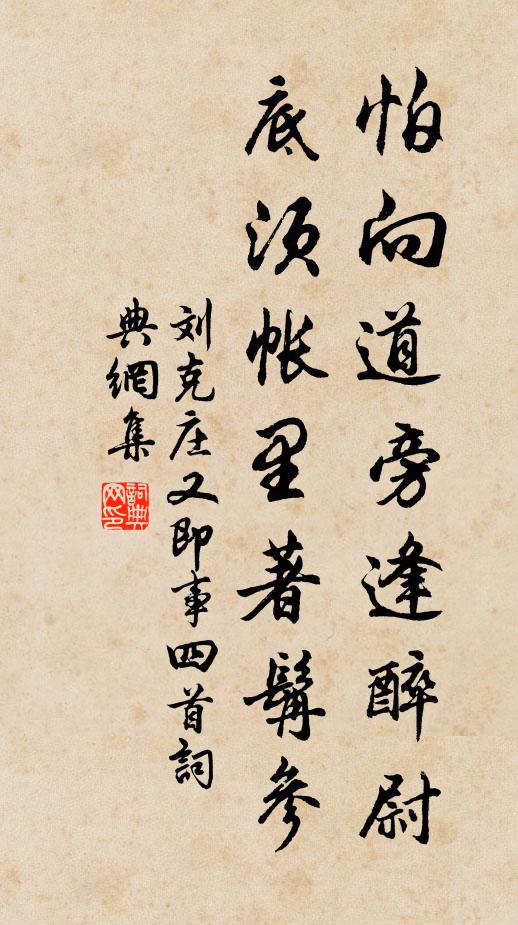 怕向道旁逢醉尉
底须帐里著髯参
刘克庄又即事四首词
典網集
詞典網印